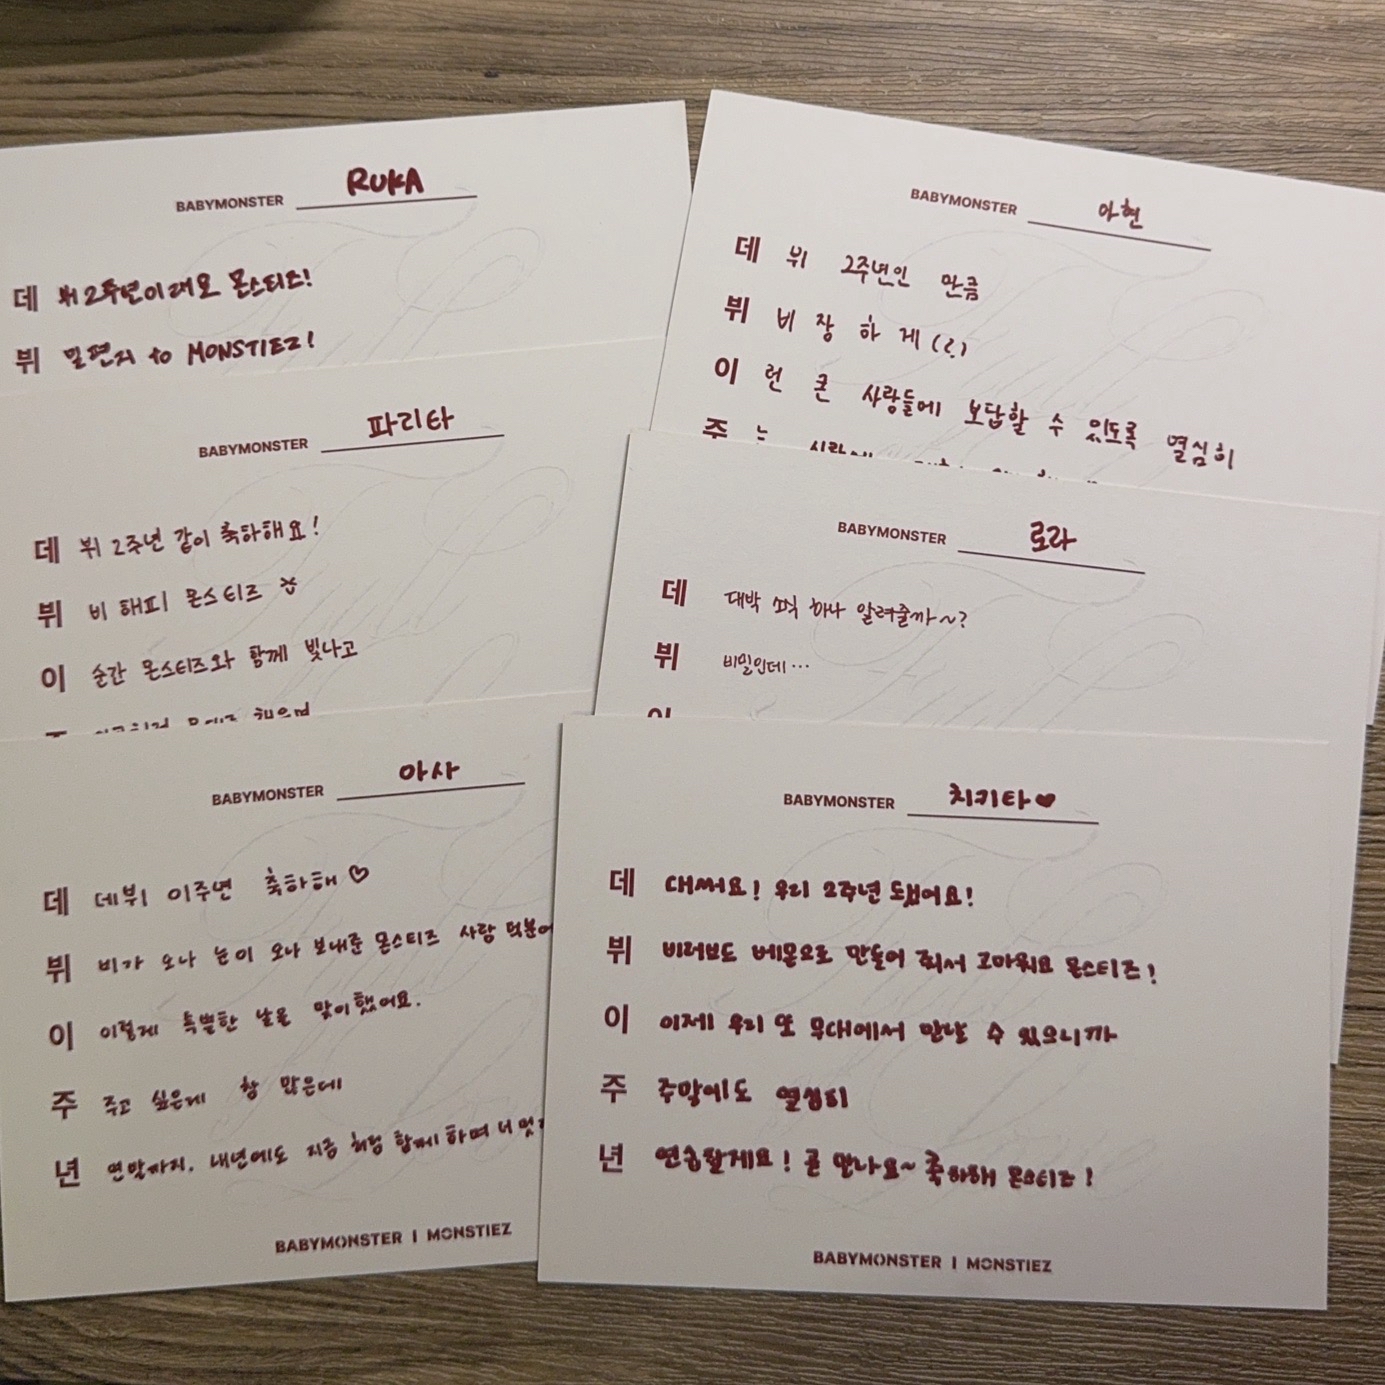 BABYMONSTER RUKA
데 뷔 2주년이래요 몬스티즈!
뷔 밀편지 to MONSTIEZ!
BABYMONSTER 파리타
데 뷔 2주년 같이 축하해요!
뷔 비 해피 몬스티즈
이 순간 몬스티즈와 함께 빛나고
BABYMONSTER 아사
데 데뷔 이주년 축하해♡
뷔 비가 오나 눈이 오나 보내준 몬스티즈 사랑 덕분에
이 이렇게 특별한 날을 맞이했어요.
주 주고 싶은게 참 많은데
년 연말까지, 내년에도 지금 처럼 함께 하며 더 멋
BABYMONSTER | MONSTIEZ
BABYMONSTER 아현
데 뷔 2주년인 만큼
뷔 비 장 하 게 (?)
이 런 큰 사랑들에 보답할 수 있도록 열심히
주 는
BABYMONSTER 로라
데 대박 소식 하나 알려줄까~?
뷔 비밀인데...
이
BABYMONSTER 치키타♥
데 대써요! 우리 2주년 됐어요!
뷔 비러브드 베몬으로 만들어 줘서 고마워요 몬스티즈!
이 이제 우리 또 무대에서 만날 수 있으니까
주 주말에도 열심히
년 연습할게요! 곧 만나요~ 축하해 몬스티즈!
BABYMONSTER | MONSTIEZ